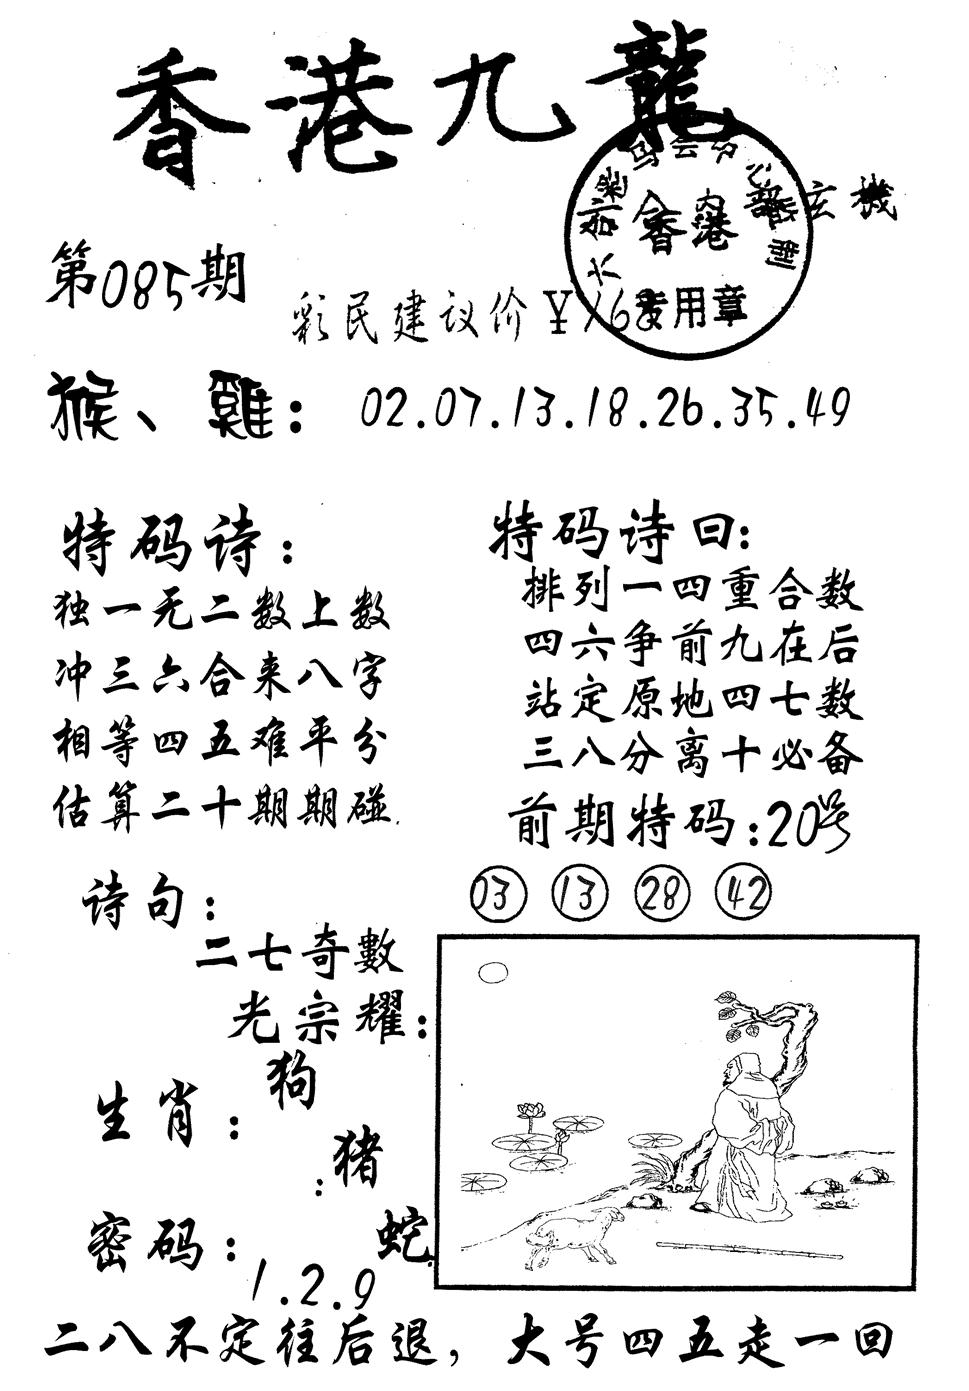 香港九龍
內部玄機
香港
专用章
第085期
彩民建议价￥168
猴、雞：02.07.13.18.26.35.49
特码诗：
独一无二数上数
冲三六合来八字
相等四五难平分
估算二十期期碰.
特码诗曰：
排列一四重合数
四六争前九在后
站定原地四七数
三八分离十必备
前期特码：20号
03 13 28 42
诗句：
二七奇數
光宗耀：
生肖：
狗
：猪
蛇
密码：
1.2.9
二八不定往后退，大号四五走一回